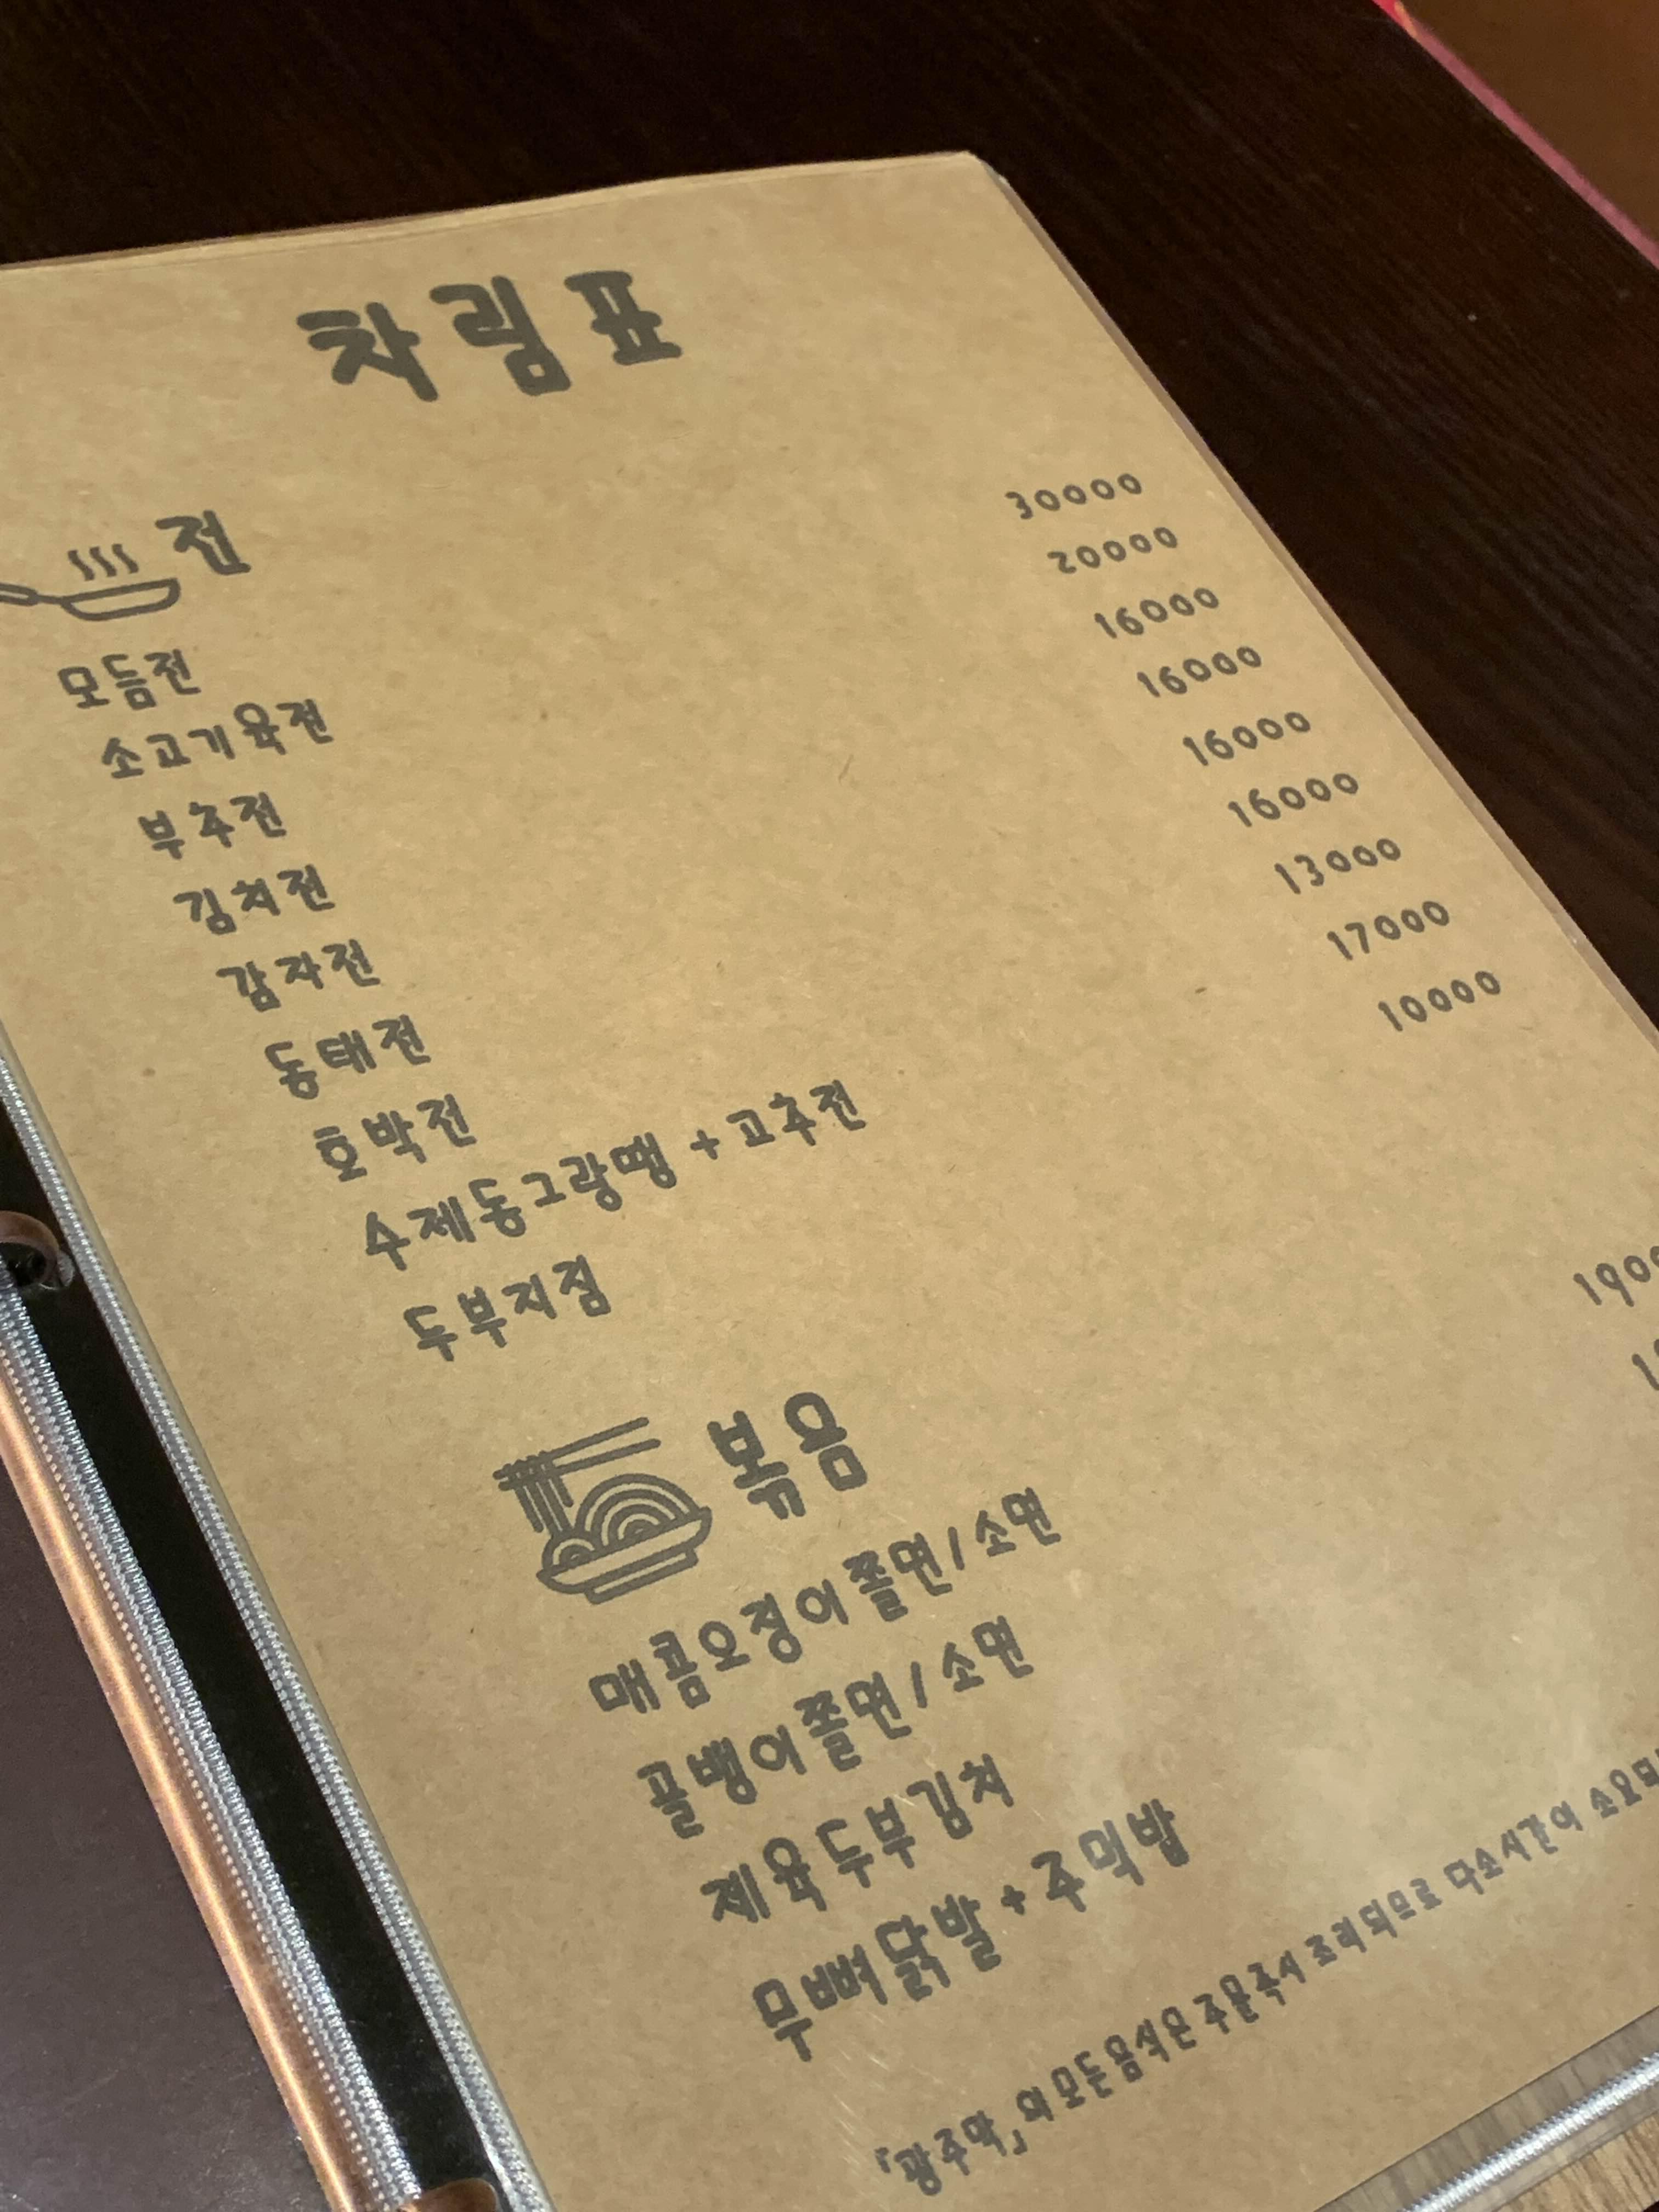 차림표
전
모듬전 30000
소고기육전 20000
부추전 16000
김치전 16000
감자전 16000
동태전 16000
호박전 13000
수제동그랑땡 + 고추전 17000
두부지짐 10000
볶음
매콤오징어쫄면/소면
골뱅이쫄면/소면
제육두부김치
무뼈닭발 + 주먹밥
「광주막」의 모든음식은 주문즉시 조리되므로 다소시간이